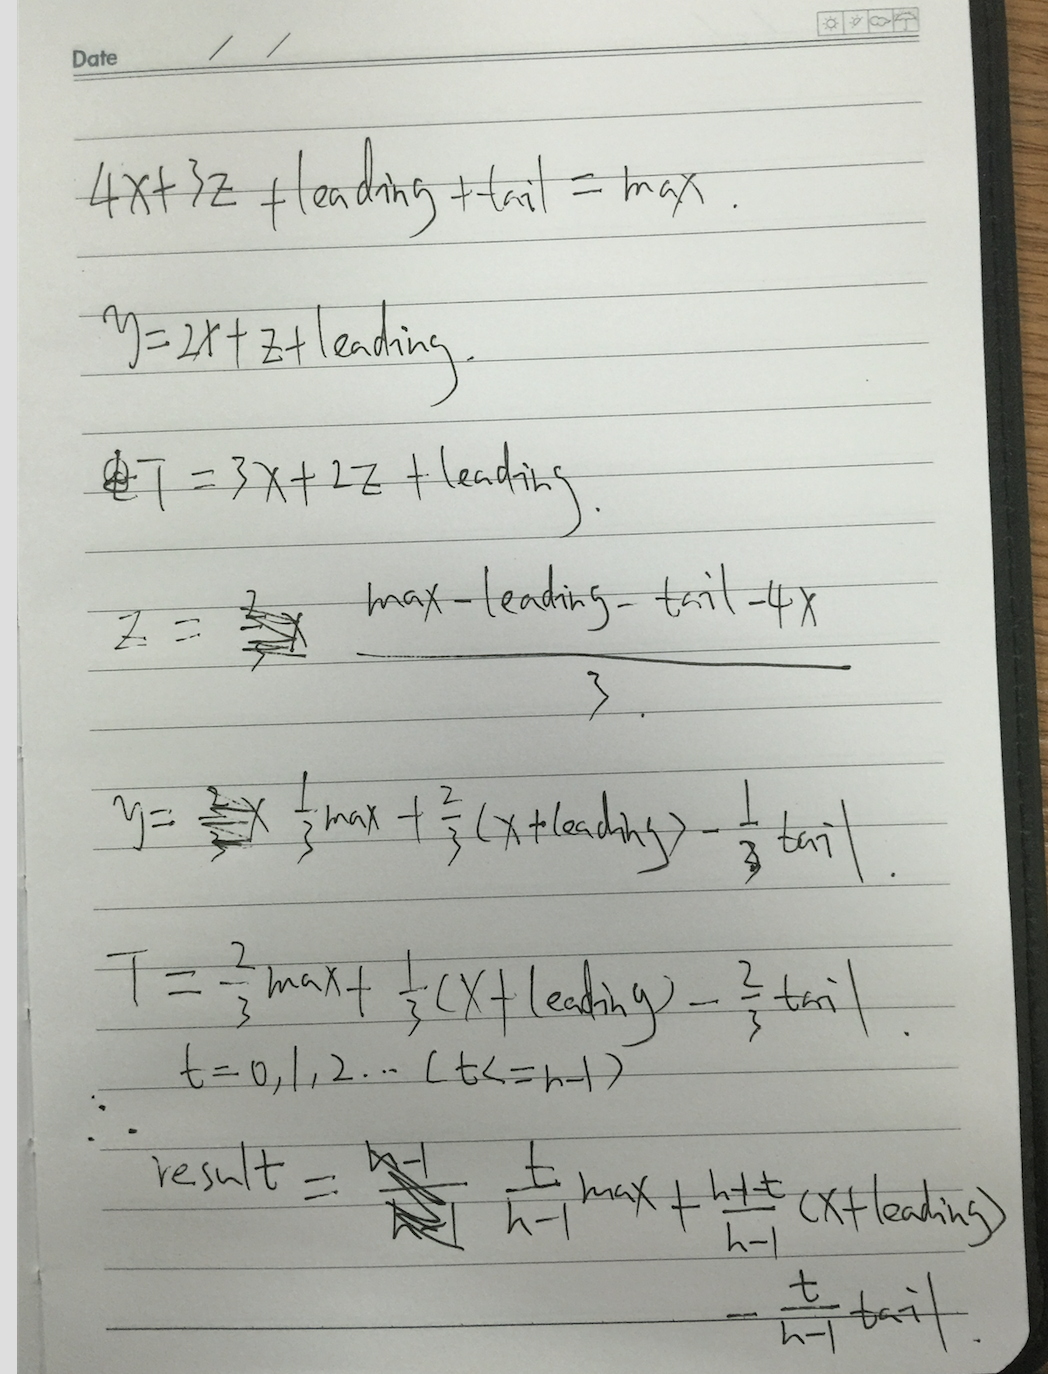 Date / /
4x+3z+leading+tail=max.
y=2x+z+leading.
T=3x+2z+leading.
z = (max-leading-tail-4x)/3.
y= 1/3 max + 2/3 (x+leading) - 1/3 tail.
T = 2/3 max + 1/3 (x+leading) - 2/3 tail.
t=0,1,2... (t<=n-1)
∴
result = t/(n-1) max + (n-1-t)/(n-1) (x+leading)
- t/(n-1) tail.